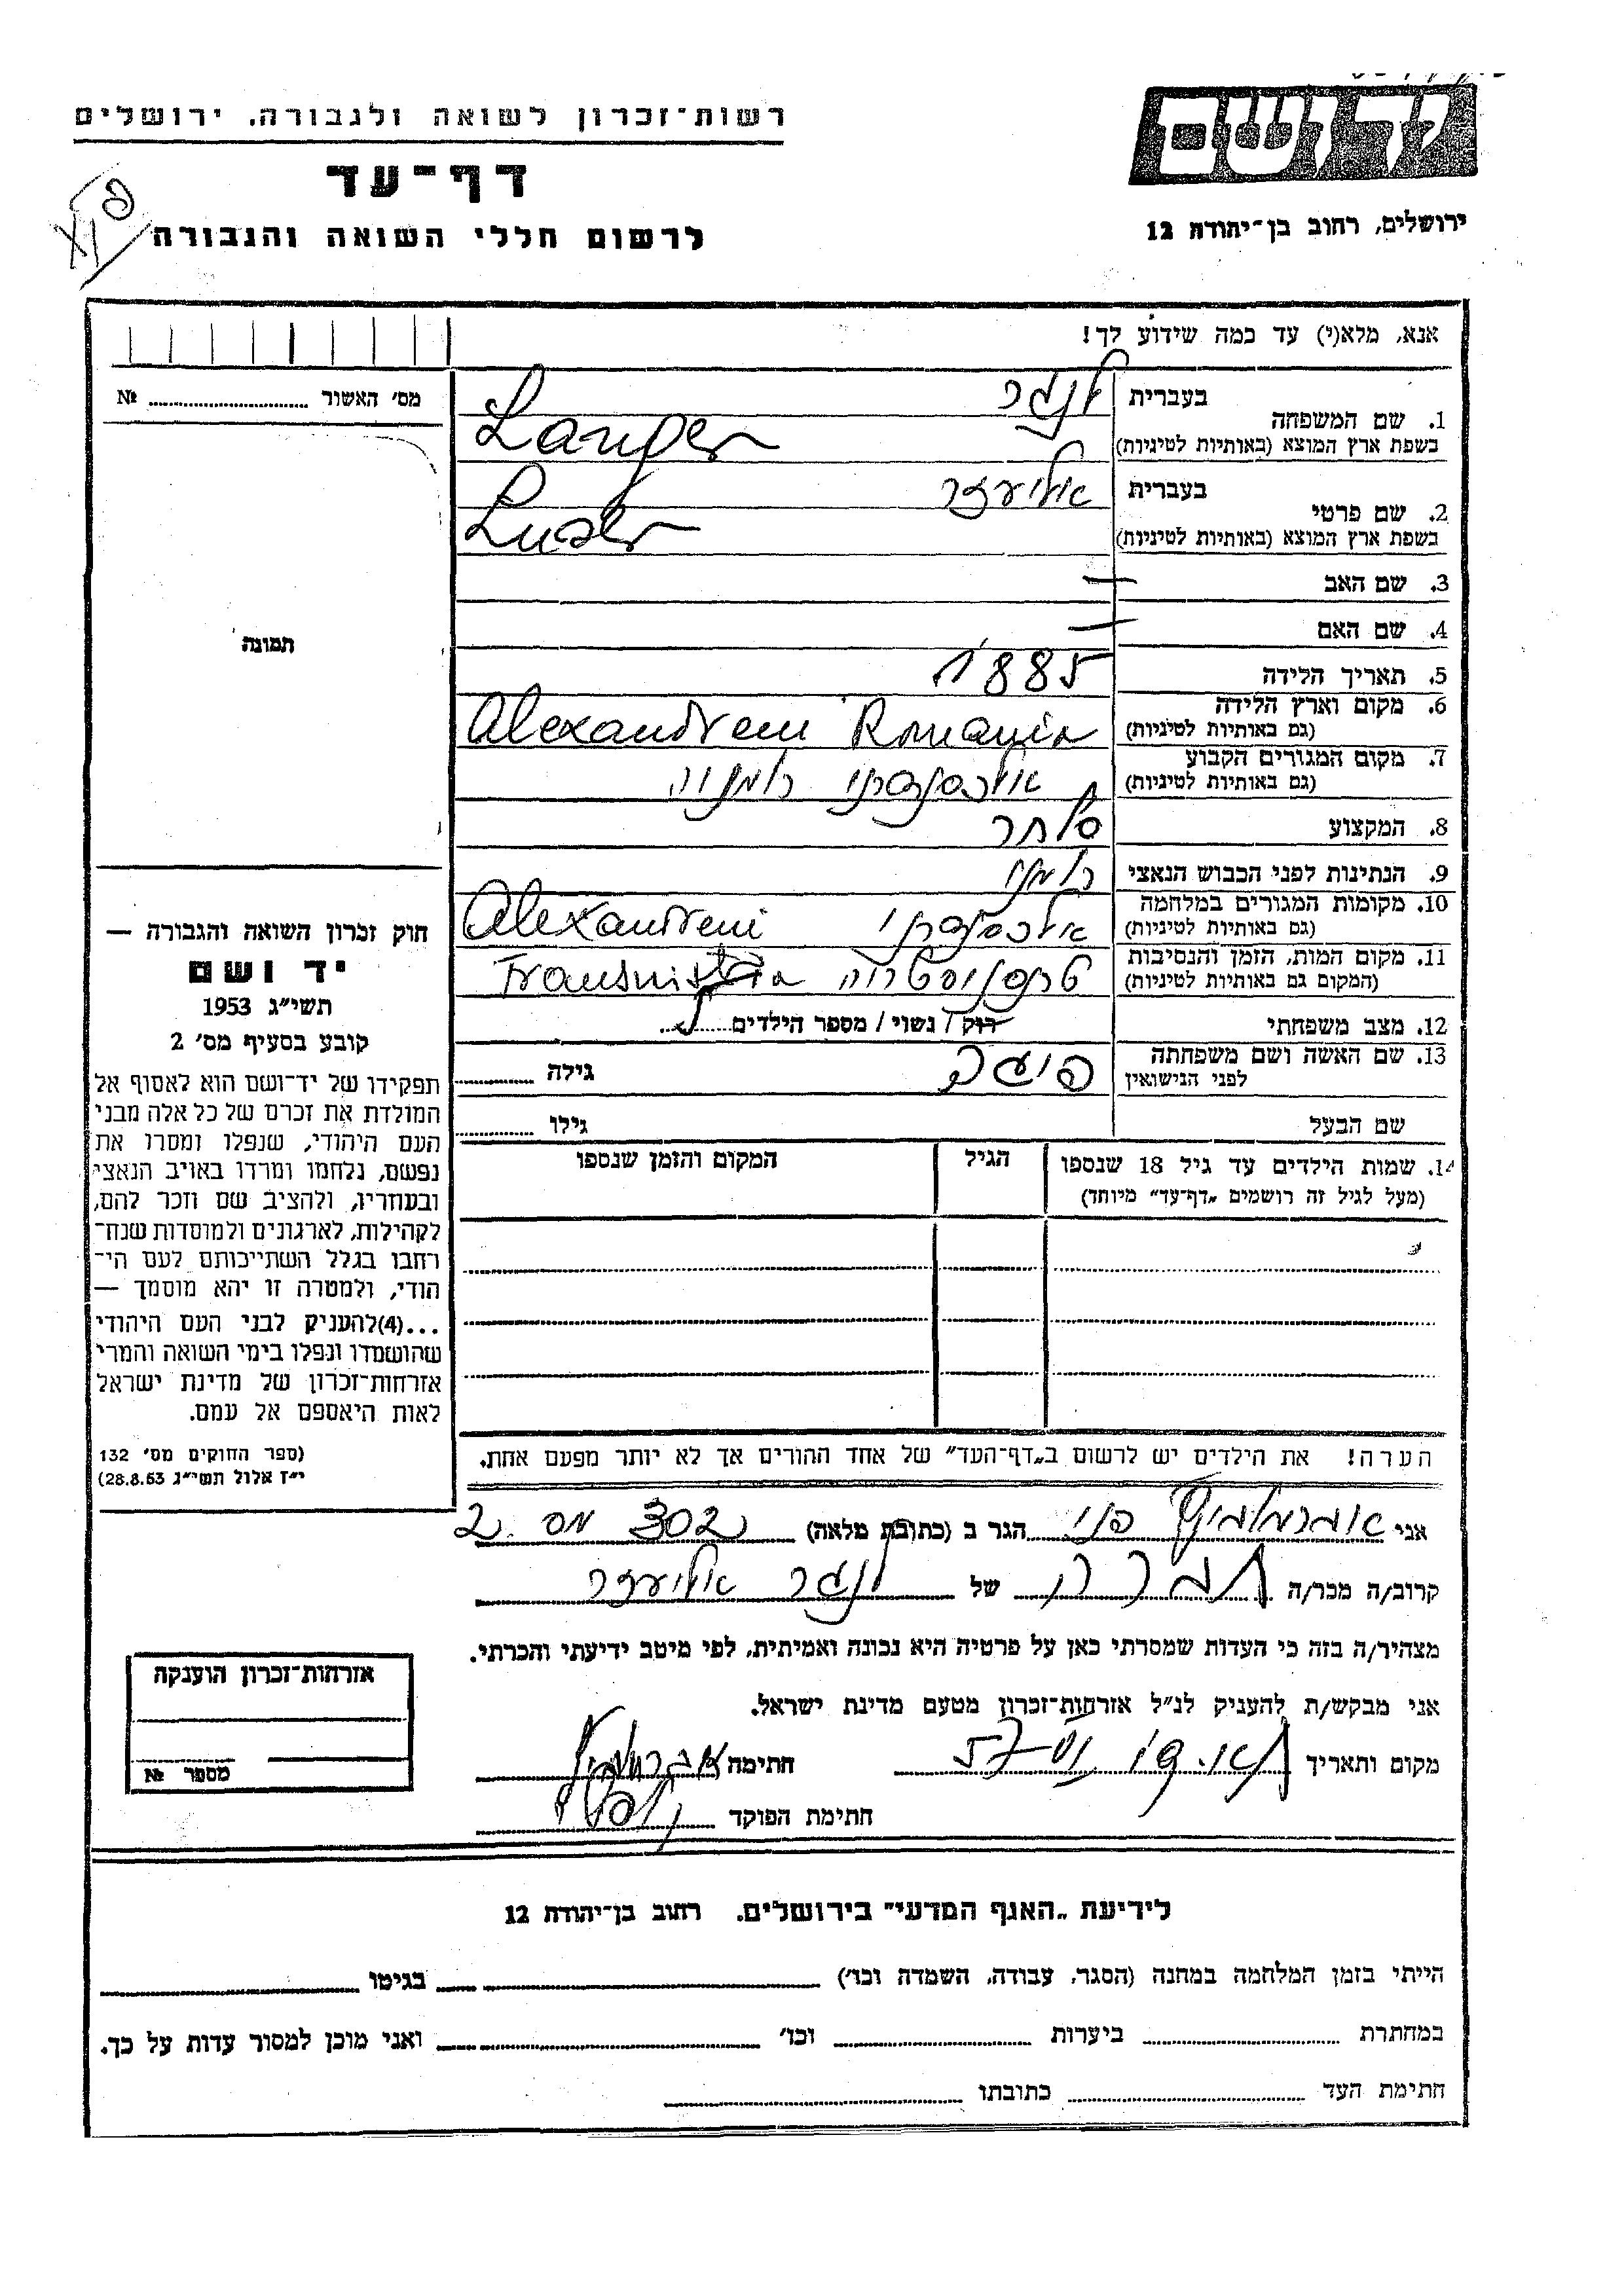 רשות־זכרון לשואה ולגבורה, ירושלים
ידושם
דף־עד
לרשום חללי השואה והגבורה
ירושלים, רחוב בן־יהודה 12
אנא, מלא(י) עד כמה שידוע לך!
מס' האשור № ........
תמונה
1. שם המשפחה
בעברית לנגר
בשפת ארץ המוצא (באותיות לטיניות) Langer
2. שם פרטי
בעברית אליעזר
בשפת ארץ המוצא (באותיות לטיניות) Luser
3. שם האב —
4. שם האם —
5. תאריך הלידה 1885
6. מקום וארץ הלידה
(גם באותיות לטיניות) Alexandreni Romania
7. מקום המגורים הקבוע
(גם באותיות לטיניות) אלכסנדרני רומניה
8. המקצוע סוחר
9. הנתינות לפני הכבוש הנאצי רומני
10. מקומות המגורים במלחמה
(גם באותיות לטיניות) אלכסנדרני Alexandreni
11. מקום המות, הזמן והנסיבות
(המקום גם באותיות לטיניות) טרנסניסטריה Transnistria
12. מצב משפחתי רוק / נשוי / מספר הילדים........
13. שם האשה ושם משפחתה
לפני הנישואין גילה ........
שם הבעל גילו ........
14. שמות הילדים עד גיל 18 שנספו הגיל המקום והזמן שנספו
(מעל לגיל זה רושמים „דף־עד" מיוחד)
הערה! את הילדים יש לרשום ב„דף־העד" של אחד ההורים אך לא יותר מפעם אחת.
חוק זכרון השואה והגבורה —
יד ושם
תשי״ג 1953
קובע בסעיף מס' 2
תפקידו של יד־ושם הוא לאסוף אל
המולדת את זכרם של כל אלה מבני
העם היהודי, שנפלו ומסרו את
נפשם, נלחמו ומרדו באויב הנאצי
ובעוזריו, ולהציב שם וזכר להם,
לקהילות, לארגונים ולמוסדות שנח־
רבו בגלל השתייכותם לעם הי־
הודי, ולמטרה זו יהא מוסמך —
...(4)להעניק לבני העם היהודי
שהושמדו ונפלו בימי השואה והמרי
אזרחות־זכרון של מדינת ישראל
לאות היאספם אל עמם.
(ספר החוקים מס' 132
י״ז אלול תשי״ג 28.8.53)
אני פני הגר ב (כתובת מלאה) 302 מס. 2
קרוב/ה מכר/ה של לנגר אליעזר
מצהיר/ה בזה כי העדות שמסרתי כאן על פרטיה היא נכונה ואמיתית, לפי מיטב ידיעתי והכרתי.
אני מבקש/ת להעניק לנ״ל אזרחות־זכרון מטעם מדינת ישראל.
מקום ותאריך חתימה
חתימת הפוקד
אזרחות־זכרון הוענקה
מספר №
לידיעת „האגף המדעי" בירושלים. רחוב בן־יהודה 12
הייתי בזמן המלחמה במחנה (הסגר, עבודה, השמדה וכו') בגיטו
במחתרת ביערות וכו' ואני מוכן למסור עדות על כך.
חתימת העד כתובתו